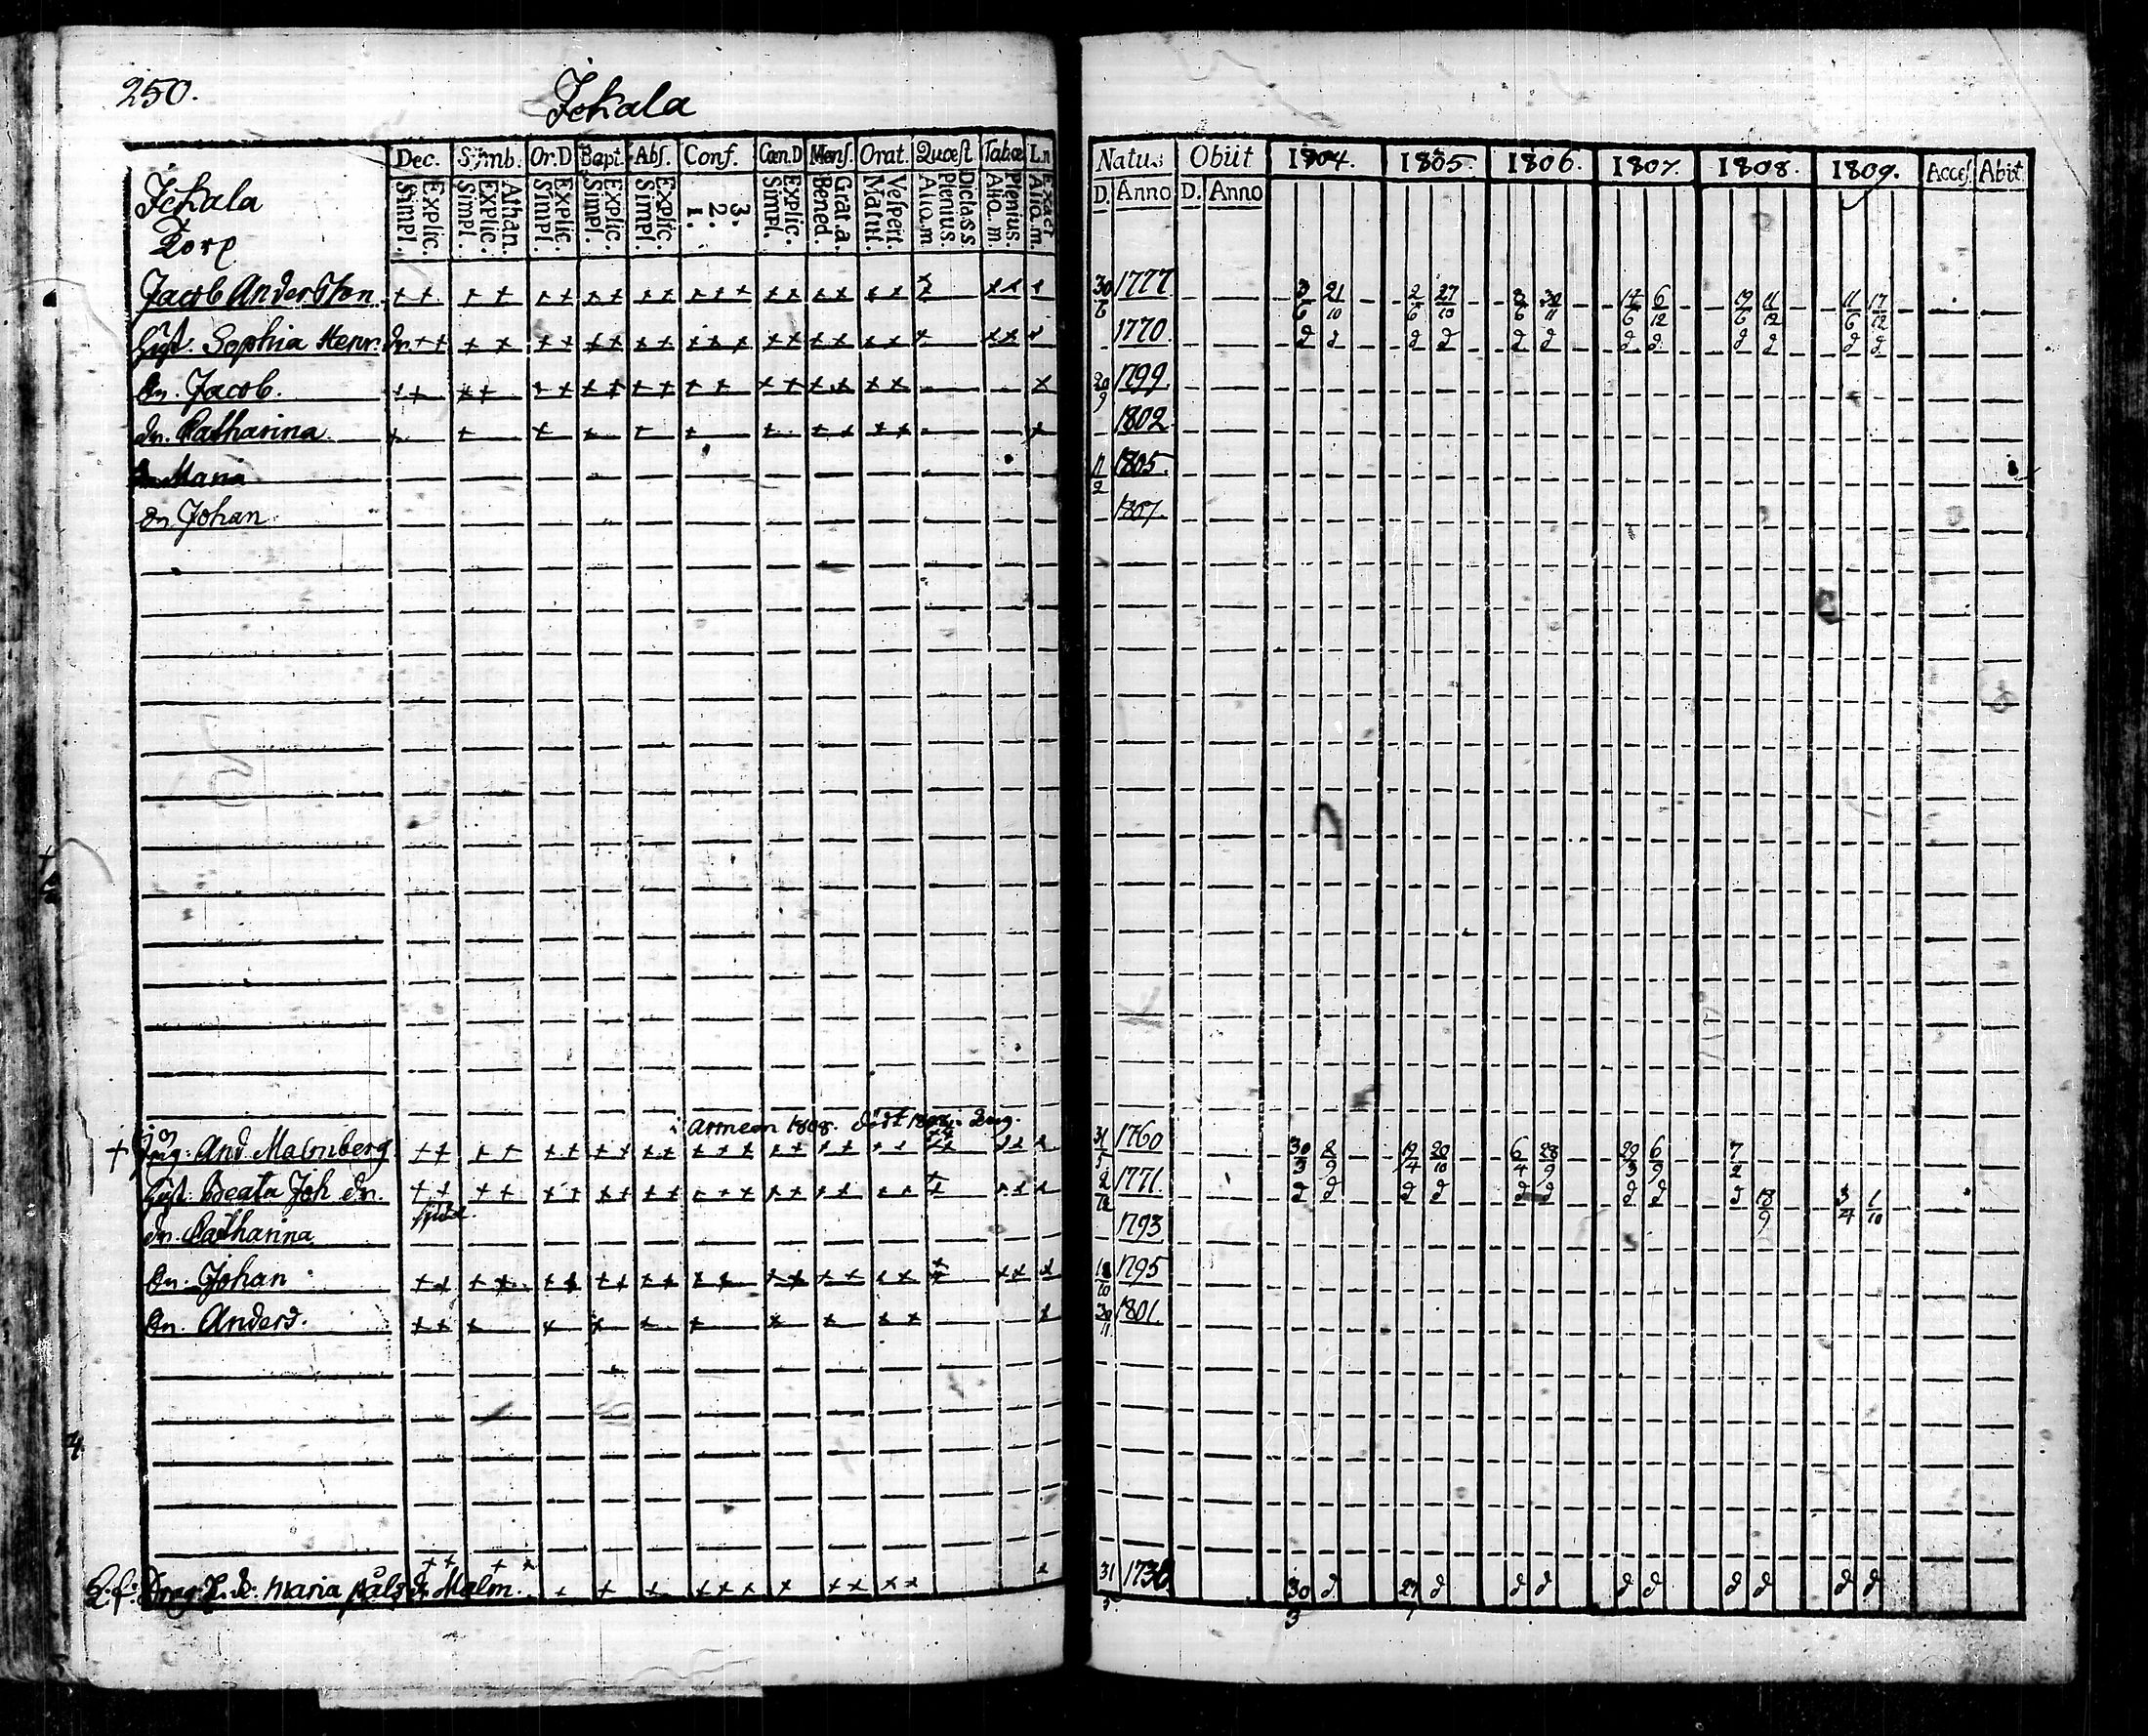 250.
Ickala
Dec. Sijmb. Or.D Bapt. Abs. Conf. Cœn.D Mens. Orat. Quæst. Tabœ Ln
Simpl. Explic. Simpl. Explic. Athan. Simpl. Explic. Simpl. Explic. Simpl. Explic. 1. 2. 3. Simpl. Explic. Bened. Grat.a. Matut. Vespert. Alio.m Plenius. Dic.lass Alio.m. Plenius. Alio.m. Exact
Natus Obiit 1804. 1805. 1806. 1807. 1808. 1809. Acces. Abit.
D. Anno D. Anno
Ickala
Torp
Jacob Andersson 30/6 1777 3/6 21/10 2/6 27/10 8/6 30/11 14/6 6/12 19/6 11/12 11/6 17/12
Hust. Sophia Henr. dr. 1770 d d d d d d d d d d d d
Sn. Jacob. 20/9 1799
dr. Catharina 1802
Maria 11/2 1805
Sn Johan 1807.
i armeen 1808. dödt
And. Malmberg 31/5 1760 30/3 2/9 19/4 20/10 6/4 28/9 29/3 6/9 7/2
Hust. Beata Joh. dr. 1771. d d d d d d d d d 18/9 3/4 1/10
dr. Catharina 1793
Sn. Johan 1795
Sn. Anders. 30/11 1801.
E.f. Drag. maria påls dr Malm. 31/5 1730 30/3 d 27/ d d d d d d d d d